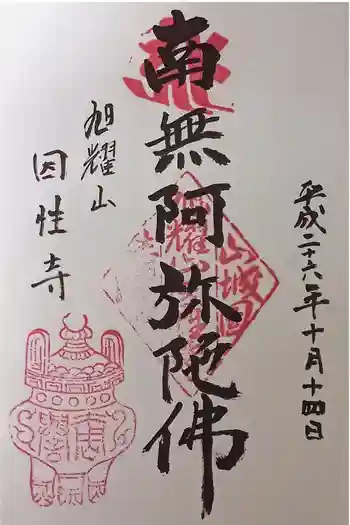 平成二十六年十月十四日
南無阿弥陀佛
旭耀山
因性寺